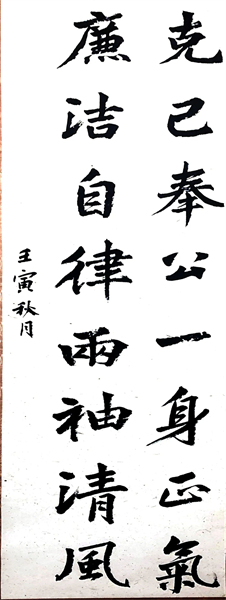 克己奉公一身正氣
廉洁自律兩袖清風
壬寅秋月